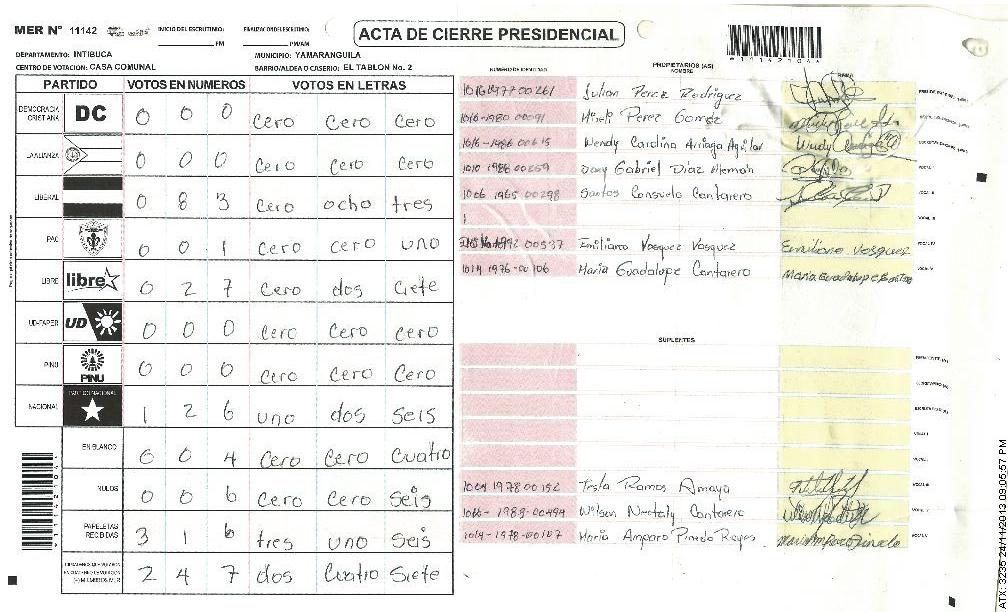 MER Nº 11142 INICIO DEL ESCRUTINIO: PM FINALIZACION DEL ESCRUTINIO: PM/AM
ACTA DE CIERRE PRESIDENCIAL
*1114210 4*
DEPARTAMENTO: INTIBUCA MUNICIPIO: YAMARANGUILA
CENTRO DE VOTACION: CASA COMUNAL BARRIO/ALDEA O CASERIO: EL TABLON No. 2
PARTIDO VOTOS EN NUMEROS VOTOS EN LETRAS
DEMOCRACIA CRISTIANA DC 0 0 0 cero cero cero
LA ALIANZA 0 0 0 cero cero cero
LIBERAL 0 8 3 cero ocho tres
PAC 0 0 1 cero cero uno
LIBRE libre 0 2 7 cero dos ciete
UD-FAPER UD 0 0 0 cero cero cero
PINU PINU 0 0 0 cero cero cero
NACIONAL PARTIDO NACIONAL 1 2 6 uno dos seis
EN BLANCO 0 0 4 cero cero cuatro
NULOS 0 0 6 cero cero seis
PAPELETAS RECIBIDAS 3 1 6 tres uno seis
2 4 7 dos cuatro siete
NUMERO DE IDENTIDAD PROPIETARIOS (AS) NOMBRE FIRMA
1016 1977 00261 Julian Perez Rodriguez
1016-1980 00091 Perez Gomez
1016-1986 00615 Wendy Carolina Arriaga Aguilar Wendy
1010 1986 00259 Dony Gabriel Díaz Alemán VOCAL I
1006 1965 00298 Santos Consuelo Cantarero VOCAL II
1 VOCAL III
1992 00537 Emiliano Vasquez Vasquez Emiliano Vasquez VOCAL IV
1014 1976-00106 Maria Guadalupe Cantarero Maria Guadalupe VOCAL V
SUPLENTES
PRESIDENTE (A)
SECRETARIO (A)
ESCRUTADOR (A)
VOCAL I
VOCAL II
1004 1978 00152 Tesla Ramos Amaya VOCAL III
1016-1988-00494 Wilson Neptaly Cantarero VOCAL IV
1014-1978-00107 Maria Amparo Pineda Reyes Maria Amparo Pineda VOCAL V
ATX: 3235 24/11/2013 09:05:57 PM